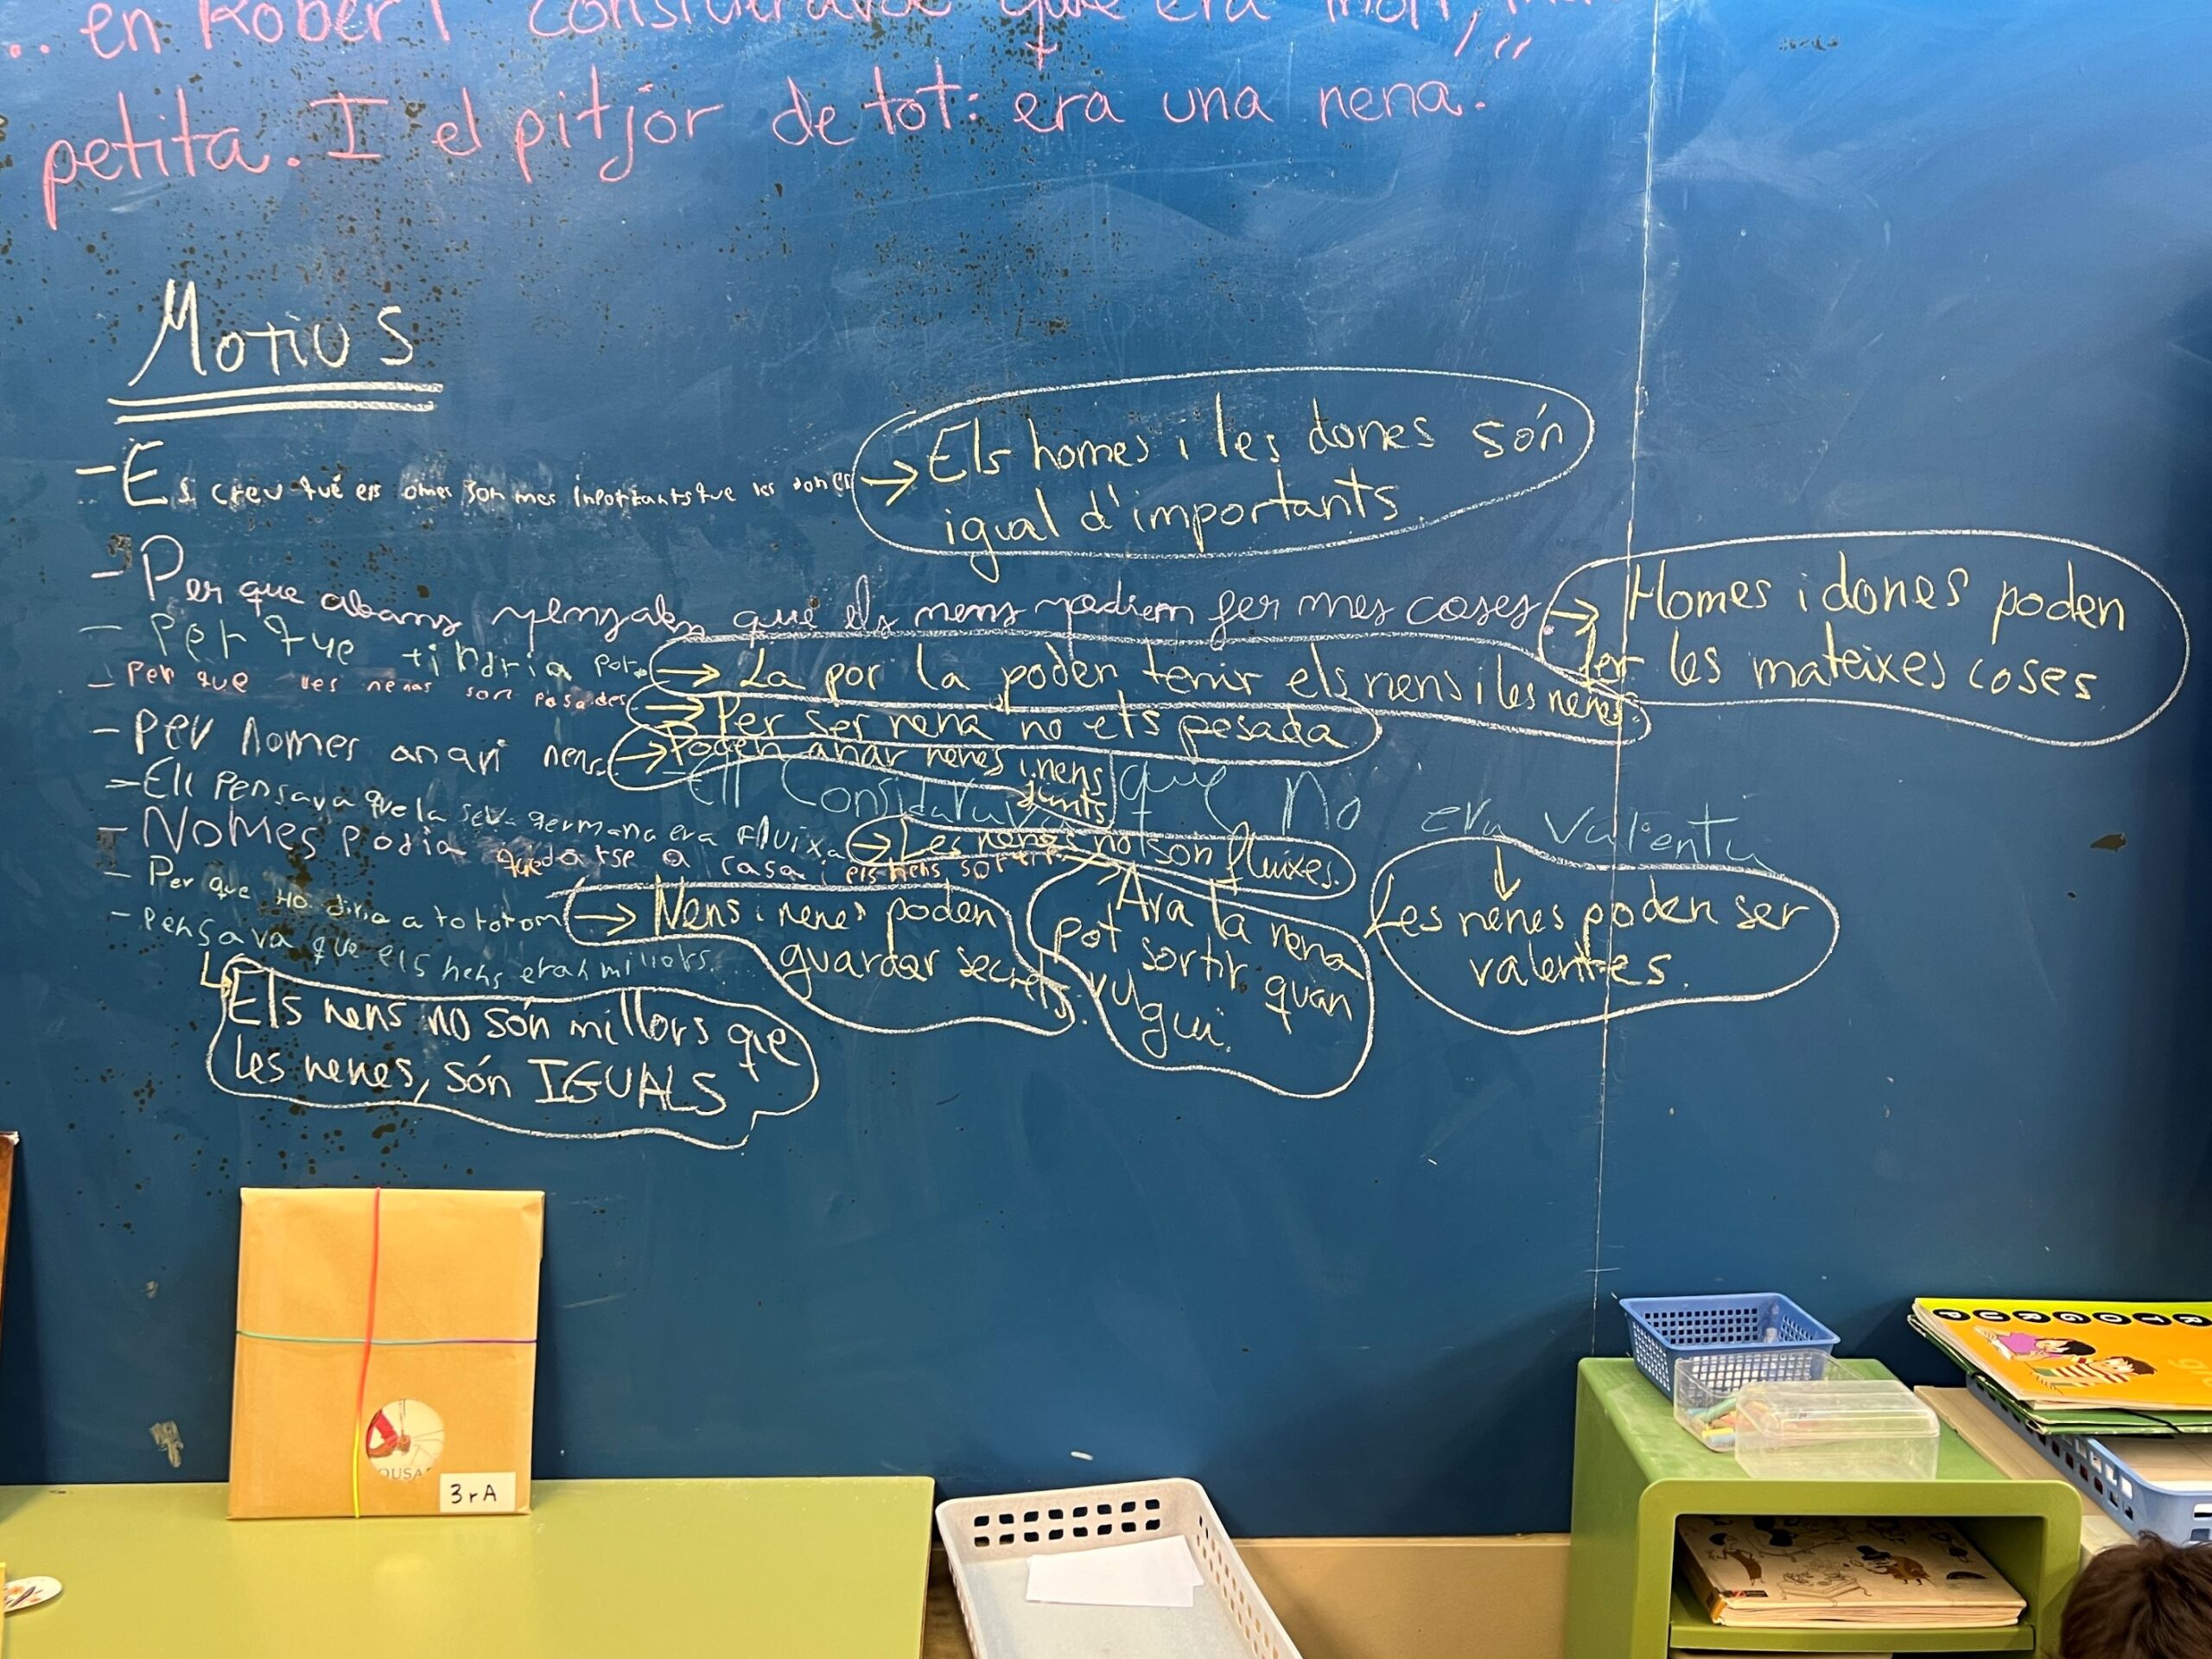 .. en Robert considerava que era molt,
petita. I el pitjor de tot: era una nena.
MOTIUS
- Es creu que els omes son mes inportants que les dones
→ Els homes i les dones són
igual d'importants.
- Per que abans pensaben que els nens podiem fer mes coses.
→ Homes i dones poden
fer les mateixes coses
- Per que tindria por.
→ La por la poden tenir els nens i les nenes.
- Per que les nenas son pasades.
→ Per ser nena no ets pesada
- Per nomes anari nens.
→ Poden anar nenes i nens
junts
- Ell pensava que la seva germana era fluixa
→ Les nenes no son fluixes.
Ell considerava que no era valenta
↓
Les nenes poden ser
valentes.
- Nomes podia quedarse a casa i els nens sortir
→ Ara la nena
pot sortir quan
vulgui.
- Per que ho diria a totom
→ Nens i nenes poden
guardar secrets.
- Pensava que els nens eran millors.
Els nens no són millors que
les nenes, són IGUALS
3r A